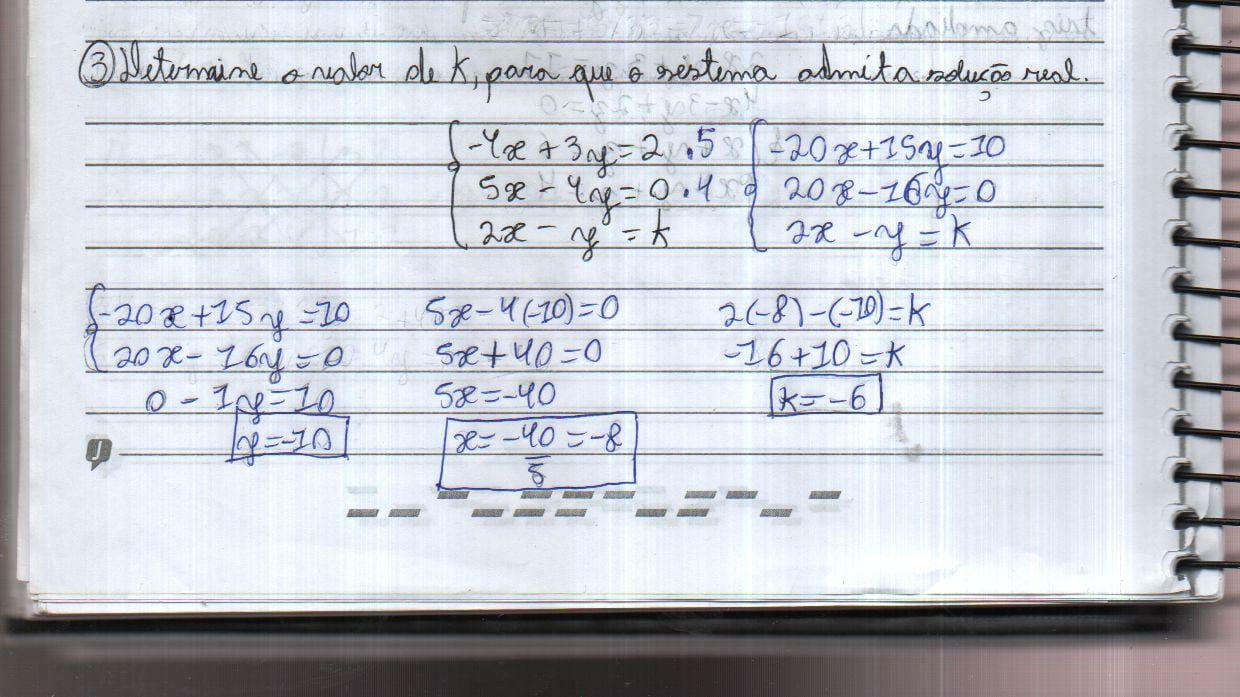 ③ Determine o valor de k, para que o sistema admita solução real.
-4x + 3y = 2 .5
5x - 4y = 0 .4
2x - y = k
-20x + 15y = 10
20x - 16y = 0
2x - y = k
-20x + 15y = 10
20x - 16y = 0
0 - 1y = 10
y = -10
5x - 4(-10) = 0
5x + 40 = 0
5x = -40
x = -40/5 = -8
2(-8) - (-10) = k
-16 + 10 = k
k = -6